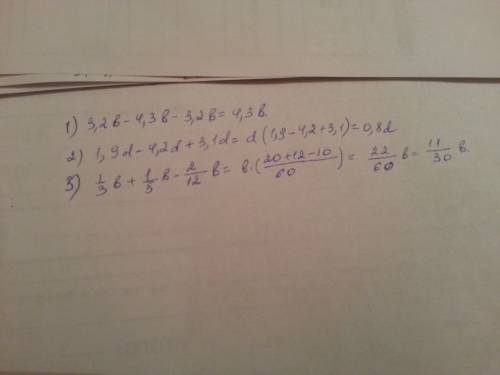 1) 3,2в - 4,3в - 3,2в = 4,3в.
2) 1,9d - 4,2d + 3,1d = d(1,9 - 4,2 + 3,1) = 0,8d
3) 1/3 в + 1/5 в - 2/12 в = в·(20+12-10/60) = 22/60 в = 11/30 в.